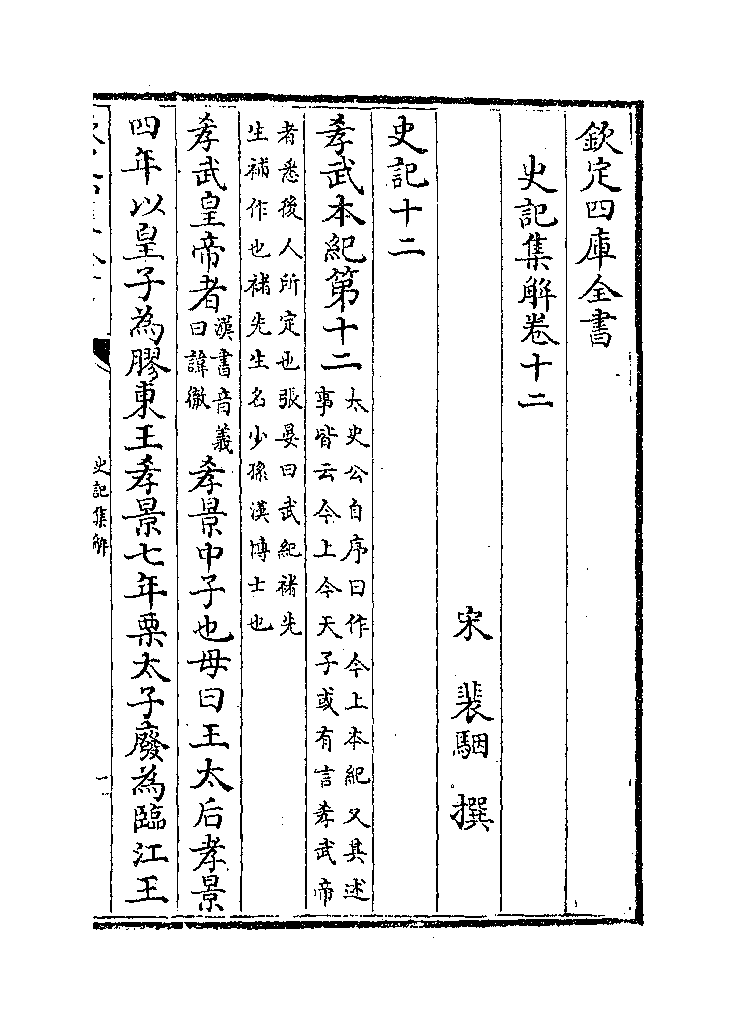 欽定四庫全書
史記集解卷十二
宋 裴駰 撰
史記十二
孝武本紀第十二太史公自序曰作今上本紀又其述
事皆云今上今天子或有言孝武帝
者悉後人所定也張晏曰武紀禇先
生補作也禇先生名少孫漢博士也
孝武皇帝者漢書音義
曰諱徹孝景中子也母曰王太后孝景
四年以皇子為膠東王孝景七年栗太子廢為臨江王
史記集解
一